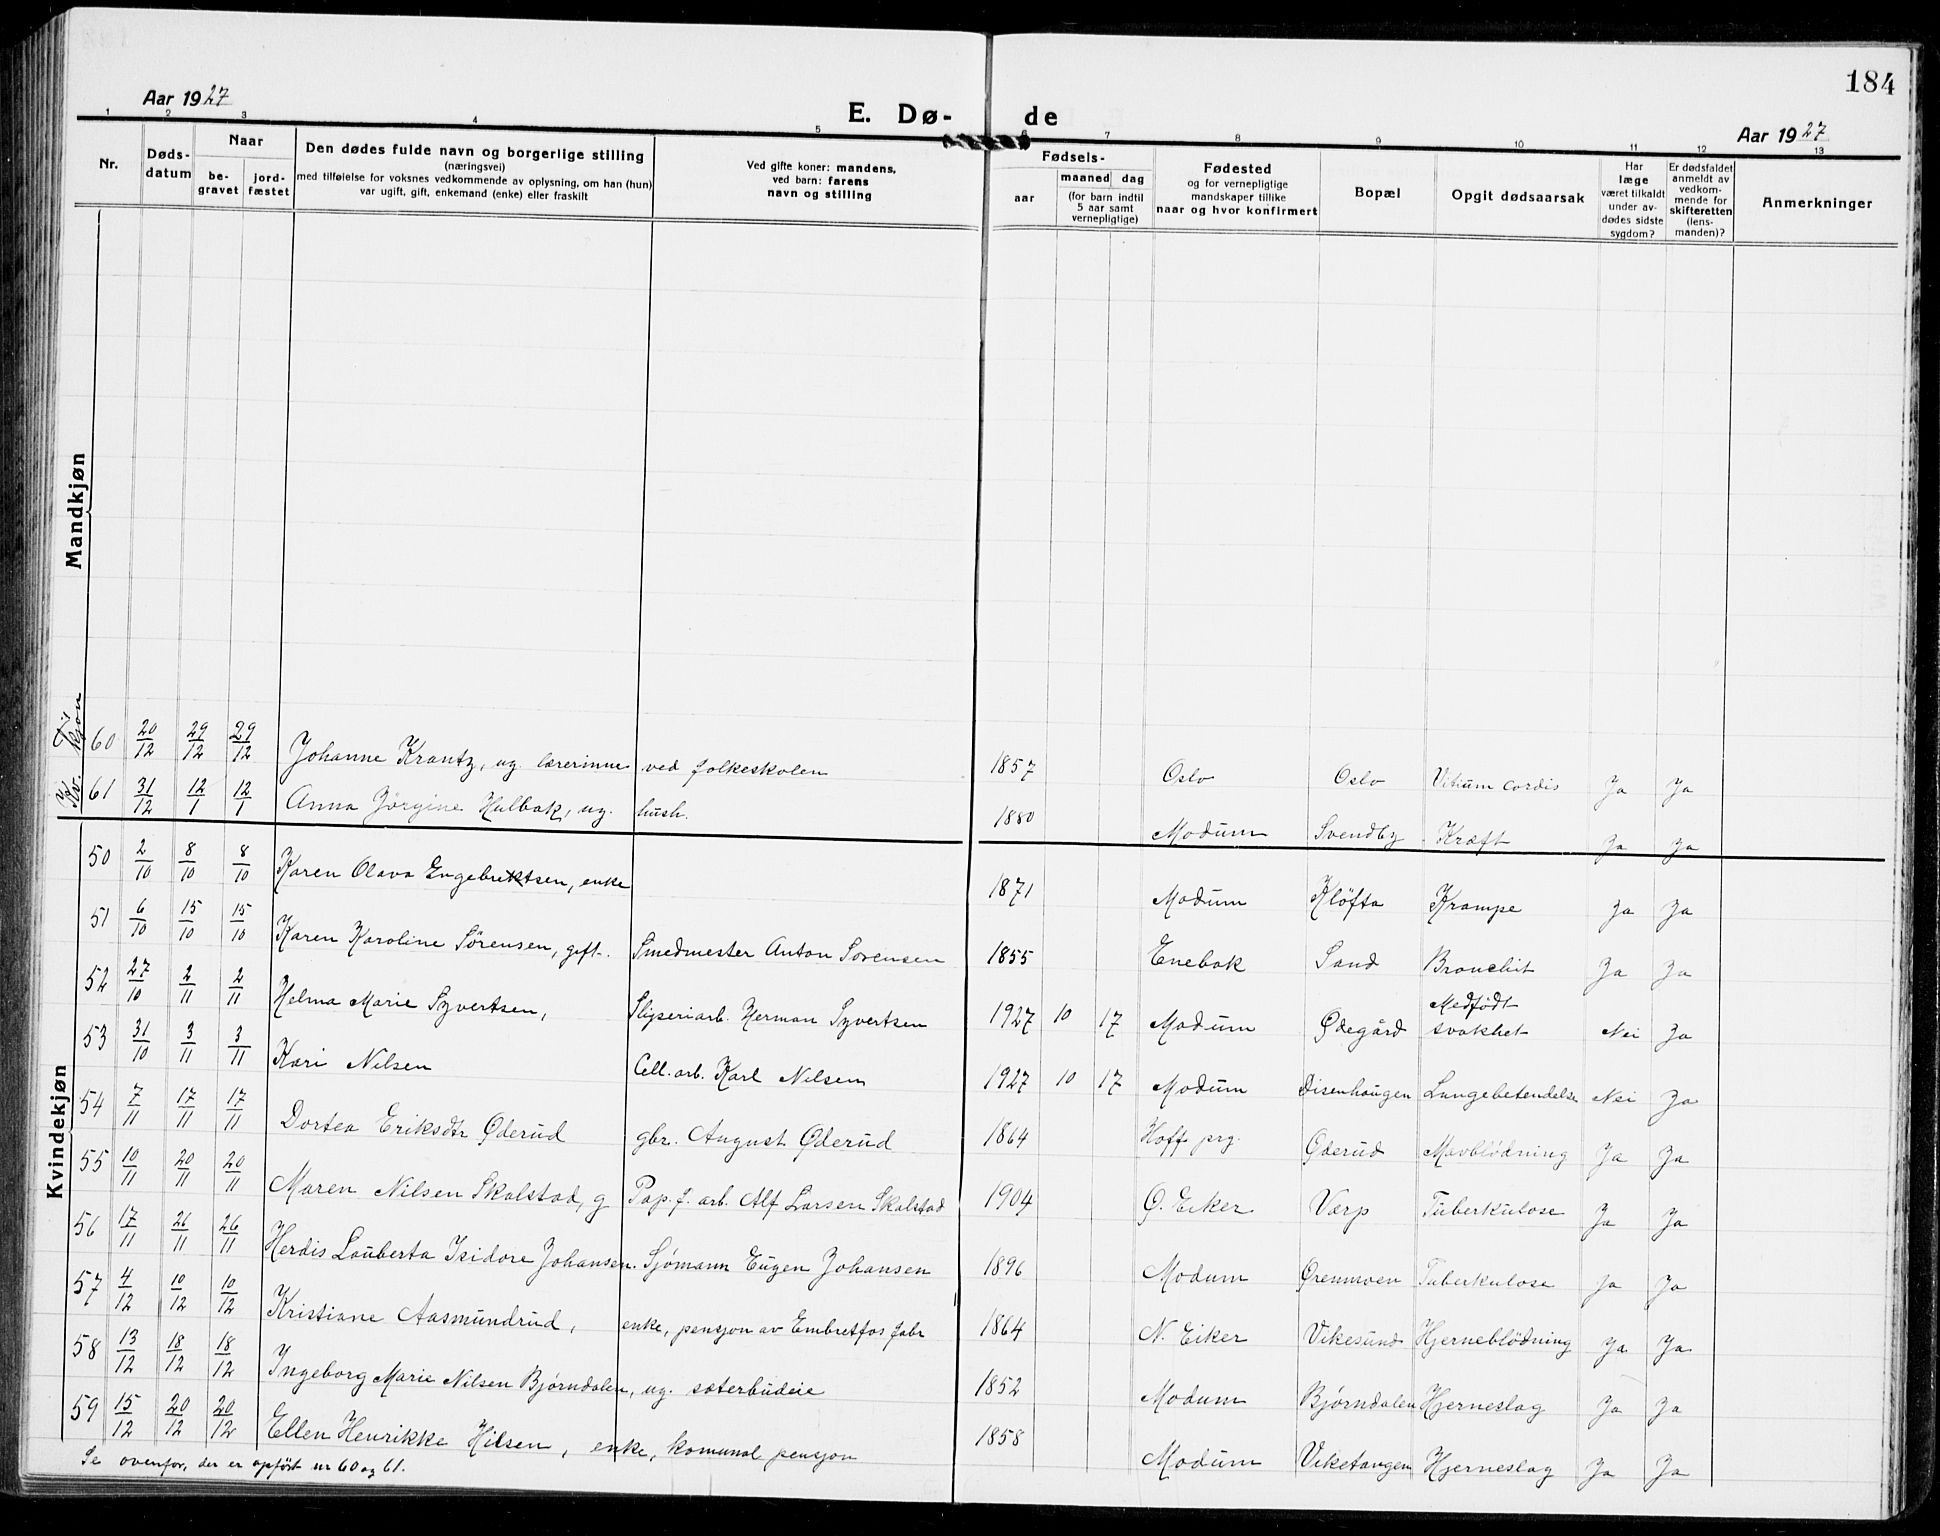 184
Aar 1927
E. Dø- de
Aar 1927
1 2 3 4 5 6 7 8 9 10 11 12 13
Nr.
Døds-datum
Naar
be-gravet
jord-fæstet
Den dødes fulde navn og borgerlige stilling
(næringsvei)
med tilføielse for voksnes vedkommende av oplysning, om han (hun)
var ugift, gift, enkemand (enke) eller fraskilt
Ved gifte koner: mandens,
ved barn: farens
navn og stilling
Fødsels-
aar
maaned dag
(for barn indtil
5 aar samt
vernepligtige)
Fødested
og for vernepligtige
mandskaper tillike
naar og hvor konfirmert
Bopæl
Opgit dødsaarsak
Har
læge
været tilkaldt
under av-
dødes sidste
sygdom?
Er dødsfaldet
anmeldt av
vedkom-
mende for
skifteretten
(lens-
manden)?
Anmerkninger
Mandkjøn
Til Kv. kjøn
60 20/12 29/12 29/12 Johanne Krantz, ug. lærerinne ved folkeskolen 1857 Oslo Oslo Vitium cordis Ja Ja
61 31/12 12/1 12/1 Anna Jørgine Hulbak, ug. hush. 1880 Modum Svendby Kræft Ja Ja
Kvindekjøn
50 2/10 8/10 8/10 Karen Olava Engebrektsen, enke 1871 Modum Kløfta Krampe Ja Ja
51 6/10 15/10 15/10 Karen Karoline Sørensen, gift. Smedmester Anton Sørensen 1855 Enebak Sand Bronchit Ja Ja
52 27/10 2/11 2/11 Helma Marie Syvertsen, Sliperiarb. Herman Syvertsen 1927 10 17 Modum Ødegård Medfødt svakhet Nei Ja
53 31/10 3/11 3/11 Kari Nilsen Cell. arb. Karl Nilsen 1927 10 17 Modum Disenhaugen Lungebetendelse Nei Ja
54 7/11 17/11 17/11 Dortea Eriksdtr Øderud gbr. August Øderud 1864 Hoff prg. Øderud Mavblødning Ja Ja
55 10/11 20/11 20/11 Maren Nilsen Skalstad, g Pap. f. arb. Alf Larsen Skalstad 1904 Ø. Eiker Varp Tuberkulose Ja Ja
56 17/11 26/11 26/11 Herdis Lauberta Isidore Johansen. Sjømann Eugen Johansen 1896 Modum Ørenmoen Tuberkulose Ja Ja
57 4/12 10/12 10/12 Kristiane Aasmundrud, enke, pensjon av Embretfos fabr 1864 N. Eiker Vikesund Hjerneblødning Ja Ja
58 13/12 18/12 18/12 Ingeborg Marie Nilsen Bjørndalen, ug. sæterbudeie 1852 Modum Bjørndalen Hjerneslag Ja Ja
59 15/12 20/12 20/12 Ellen Henrikke Hilsen, enke, komunal pensjon 1858 Modum Viketangen Hjerneslag Ja Ja
Se ovenfor, der er opført nr 60 og 61.